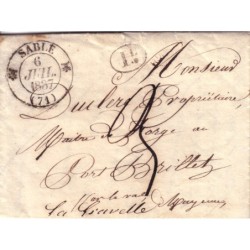 SABLÉ
6
JUIL.
1837
(71)
1D
Monsieur
Duclers Propriétaire
Maître de forge au
Port Brillet
par la
la Gravelle Mayenne
5